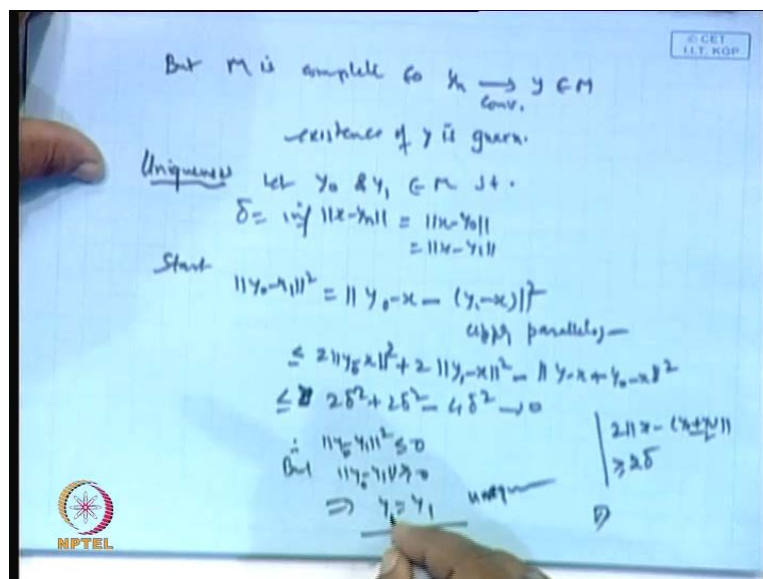 © CET
I.I.T. KGP
But M is complete so yₙ →conv. y ∈ M
existence of y is guarn.
Uniqueness Let y₀ & y₁ ∈ M s.t.
δ = inf ||x-yₙ|| = ||x-y₀||
= ||x-y₁||
Start
||y₀-y₁||² = ||y₀-x - (y₁-x)||²
appy parallelog
≤ 2||y₀-x||² + 2||y₁-x||² - ||y₁-x+y₀-x||²
≤ 2δ² + 2δ² - 4δ² → 0
2||x - (y₁+y₀)/2||
≥ 2δ
∴ ||y₀-y₁||² ≤ 0
But ||y₀-y₁|| ≥ 0
⇒ y₀ = y₁ unique
NPTEL